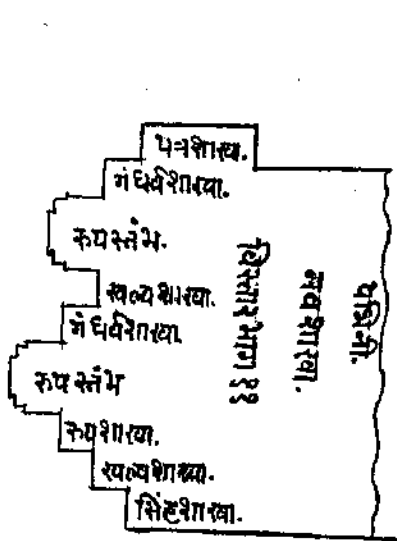 पत्रशाखा.
गंधर्वशाखा.
रूपस्तंभ.
खल्वशाखा.
गंधर्वशाखा.
रूपस्तंभ
रूपशाखा.
खल्वशाखा.
सिंहशाखा.
विस्तारभाग ११
नवशाखा.
पद्मिनी.